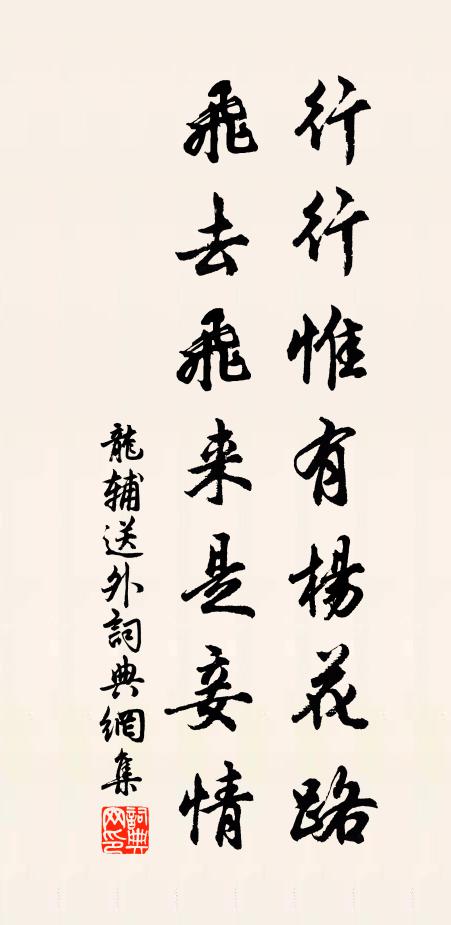 行行惟有楊花路
飛去飛来是妾情
龍輔送外詞典網集
詞典網印